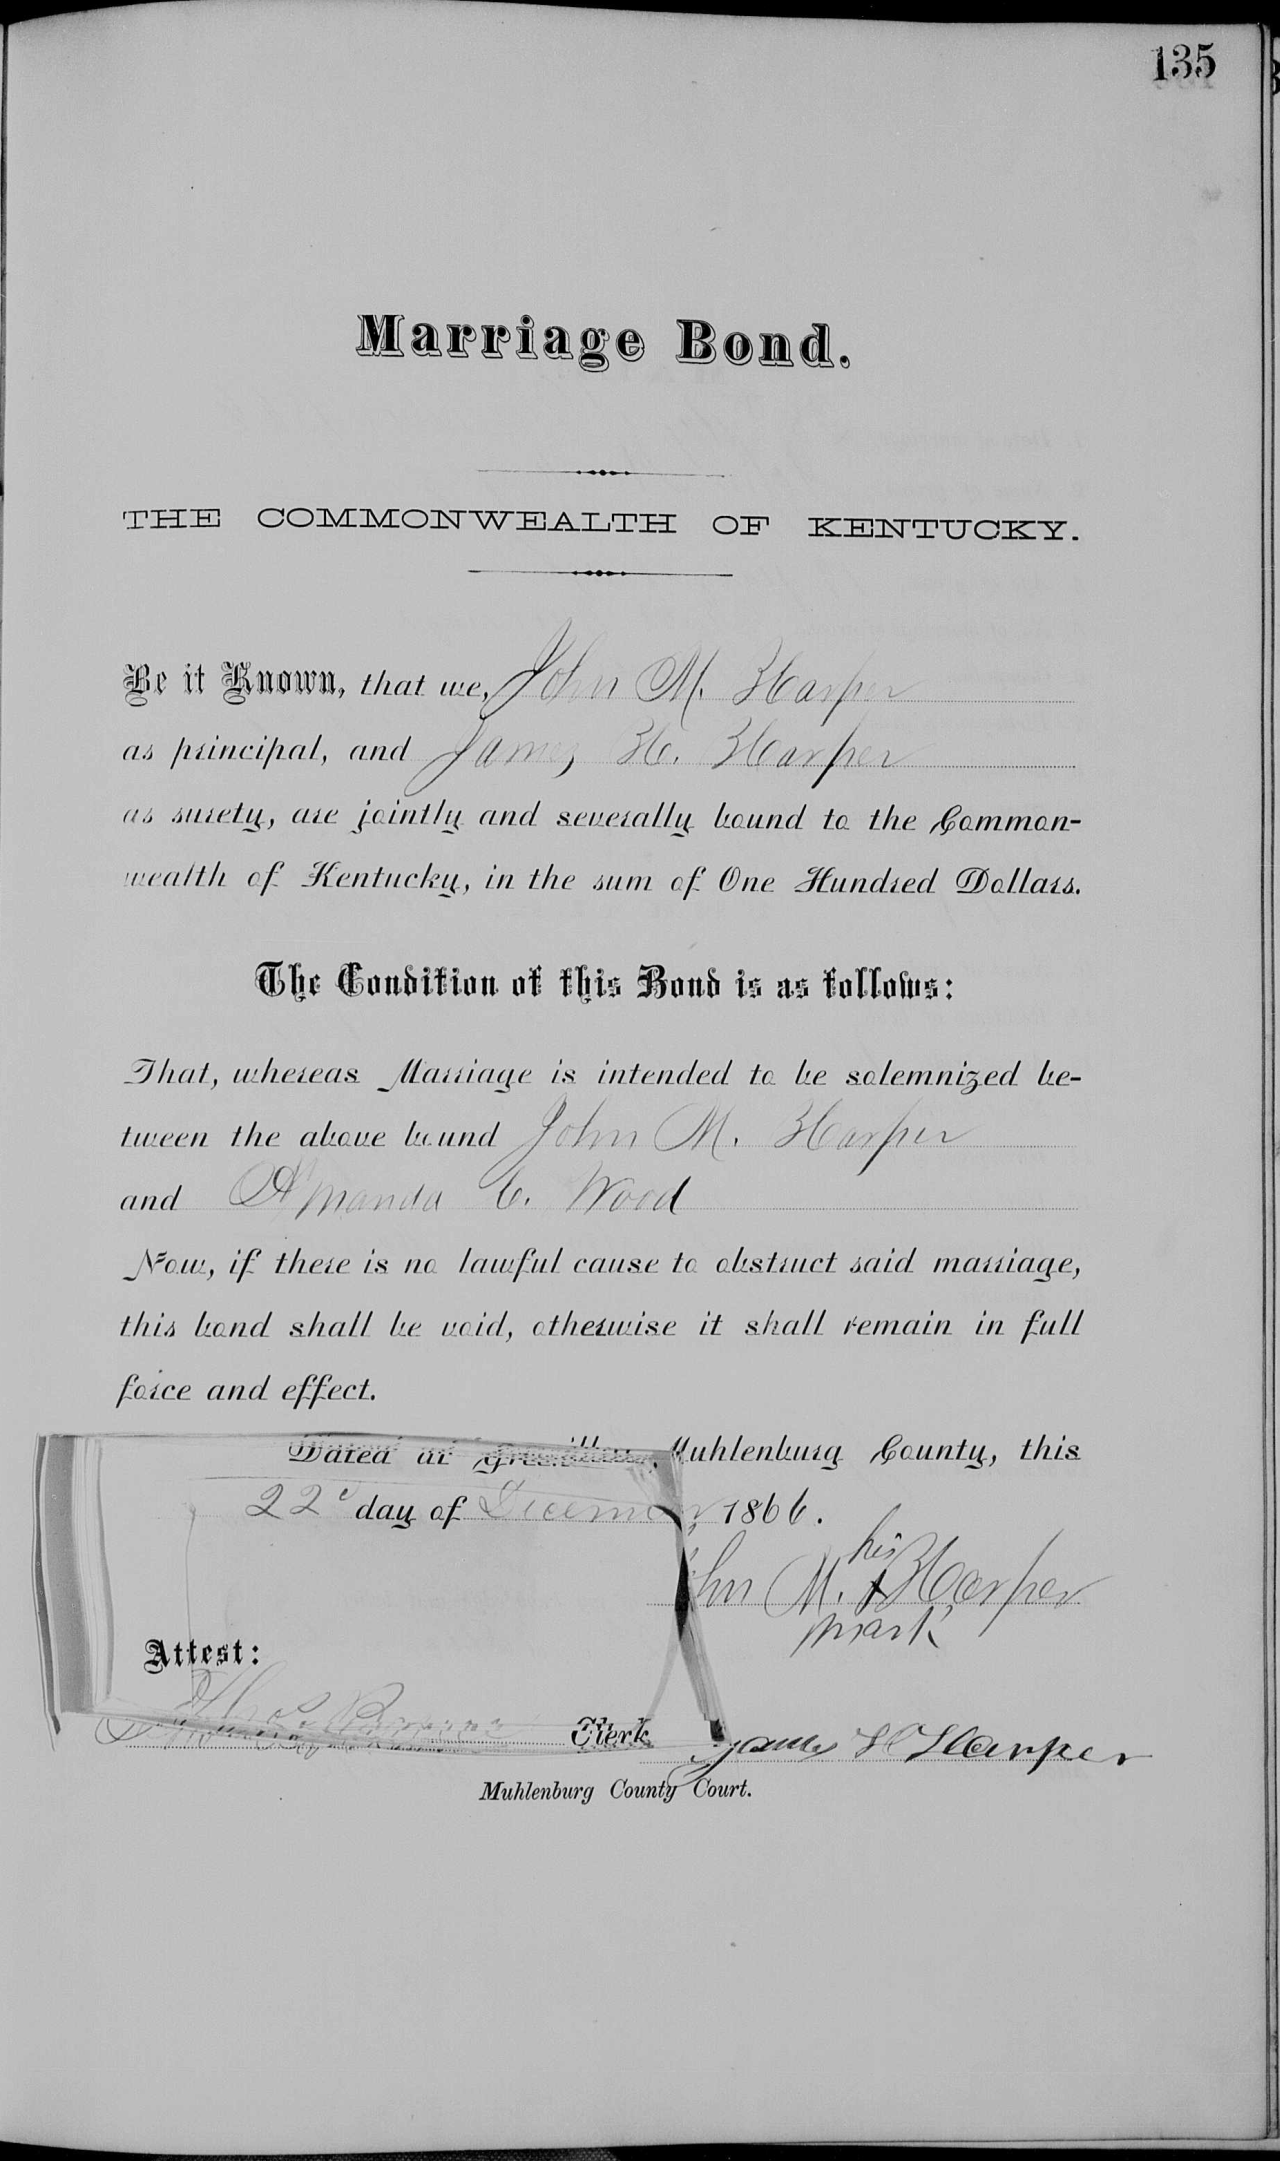 135
Marriage Bond.
THE COMMONWEALTH OF KENTUCKY.
Be it Known, that we, John M. Harper
as principal, and James H. Harper
as surety, are jointly and severally bound to the Common-
wealth of Kentucky, in the sum of One Hundred Dollars.
The Condition of this Bond is as follows:
That, whereas Marriage is intended to be solemnized be-
tween the above bound John M. Harper
and Amanda C. Wood
Now, if there is no lawful cause to obstruct said marriage,
this bond shall be void, otherwise it shall remain in full
force and effect.
Dated at Muhlenburg County, this
22d day of 1866.
his
M. X Harper
mark
Attest:
Clerk James H Harper
Muhlenburg County Court.